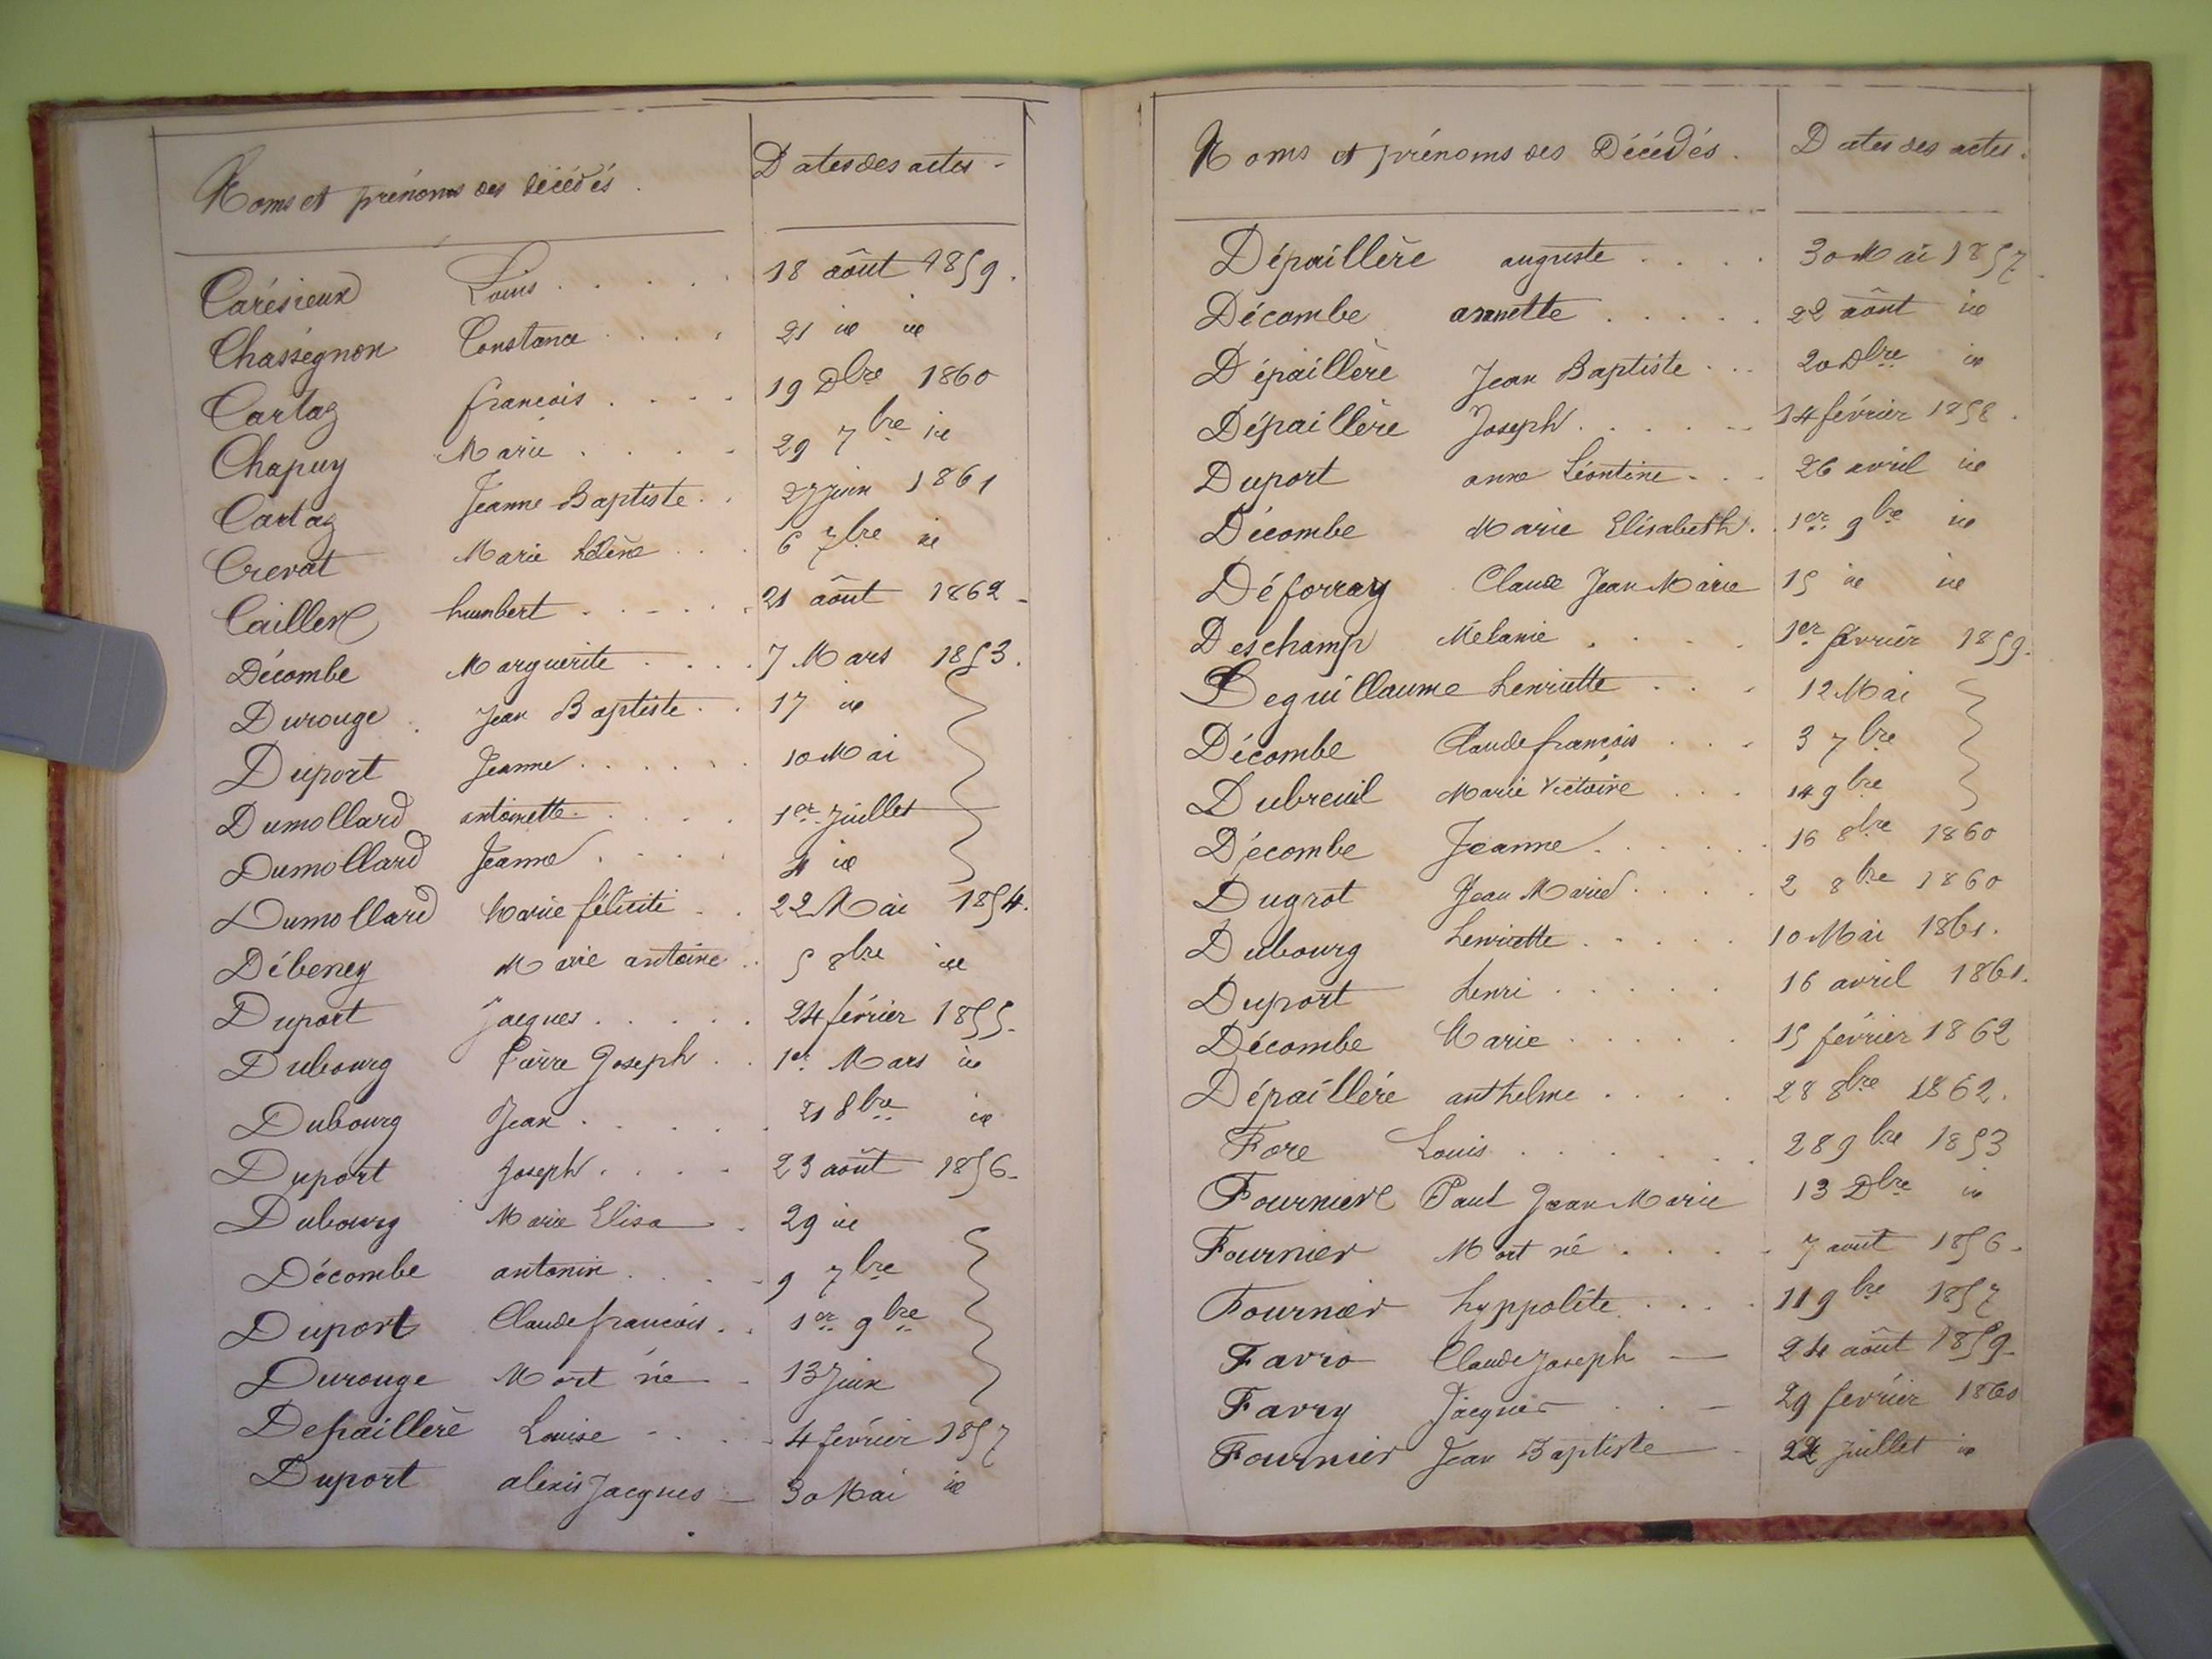 Noms et prénoms des décédés. Dates des actes -
Carésieux Louis 18 août 1859.
Chassegnon Constance 21 id id
Cartaz francois 19 Dbre 1860
Chapuy Marie 29 7bre id
Cartaz Jeanne Baptiste 27 juin 1861
Crevat Marie 6 7bre id
Cailler humbert 21 août 1862 -
Décombe Marguerite 7 Mars 1853.
Durouge Jean Baptiste 17 id
Duport Jeanne 10 Mai
Dumollard antoinette 1er Juillet
Dumollard Jeanne 4 id
Dumollard Marie félicité 22 Mai 1854.
Débeney Marie antoine 5 8bre id
Duport Jacques 24 février 1855.
Dubourg Pierre Joseph 1er Mars id
Dubourg Jean 21 8bre id
Duport Joseph 23 août 1856-
Dubourg Marie Elisa 29 id
Décombe antonin 9 7bre
Duport Claude francois 1er 9bre
Durouge Mort né 13 Juin
Depaillère Louise 4 février 1857
Duport alexis Jacques 30 Mai id
Noms et prénoms des Décédés. Dates des actes.
Dépaillère auguste 30 Mai 1857.
Décombe annette 22 août id
Dépaillère Jean Baptiste 20 Dbre id
Dépaillère Joseph 14 février 1858.
Duport anne Léontine 26 avril id
Décombe Marie Elisabeth 1er 9bre id
Déforray Claude Jean Marie 15 id id
Deschamp Mélanie 1er février 1859.
Deguillaume henriette 12 Mai
Décombe Claude françois 3 7bre
Dubreuil Marie Victoire 14 9bre
Décombe Jeanne 16 8bre 1860
Dugrot Jean Marie 2 8bre 1860
Dubourg henriette 10 Mai 1861.
Duport henri 16 avril 1861.
Décombe Marie 15 février 1862
Dépaillère anthelme 28 8bre 1862.
Fore Louis 28 9bre 1853
Fournier Paul Jean Marie 13 Dbre id
Fournier Mort né 7 aout 1856-
Fournier hyppolite 11 9bre 1857
Favro Claude Joseph 24 août 1859-
Favry Jacques 29 février 1860
Fournier Jean Baptiste Juillet id